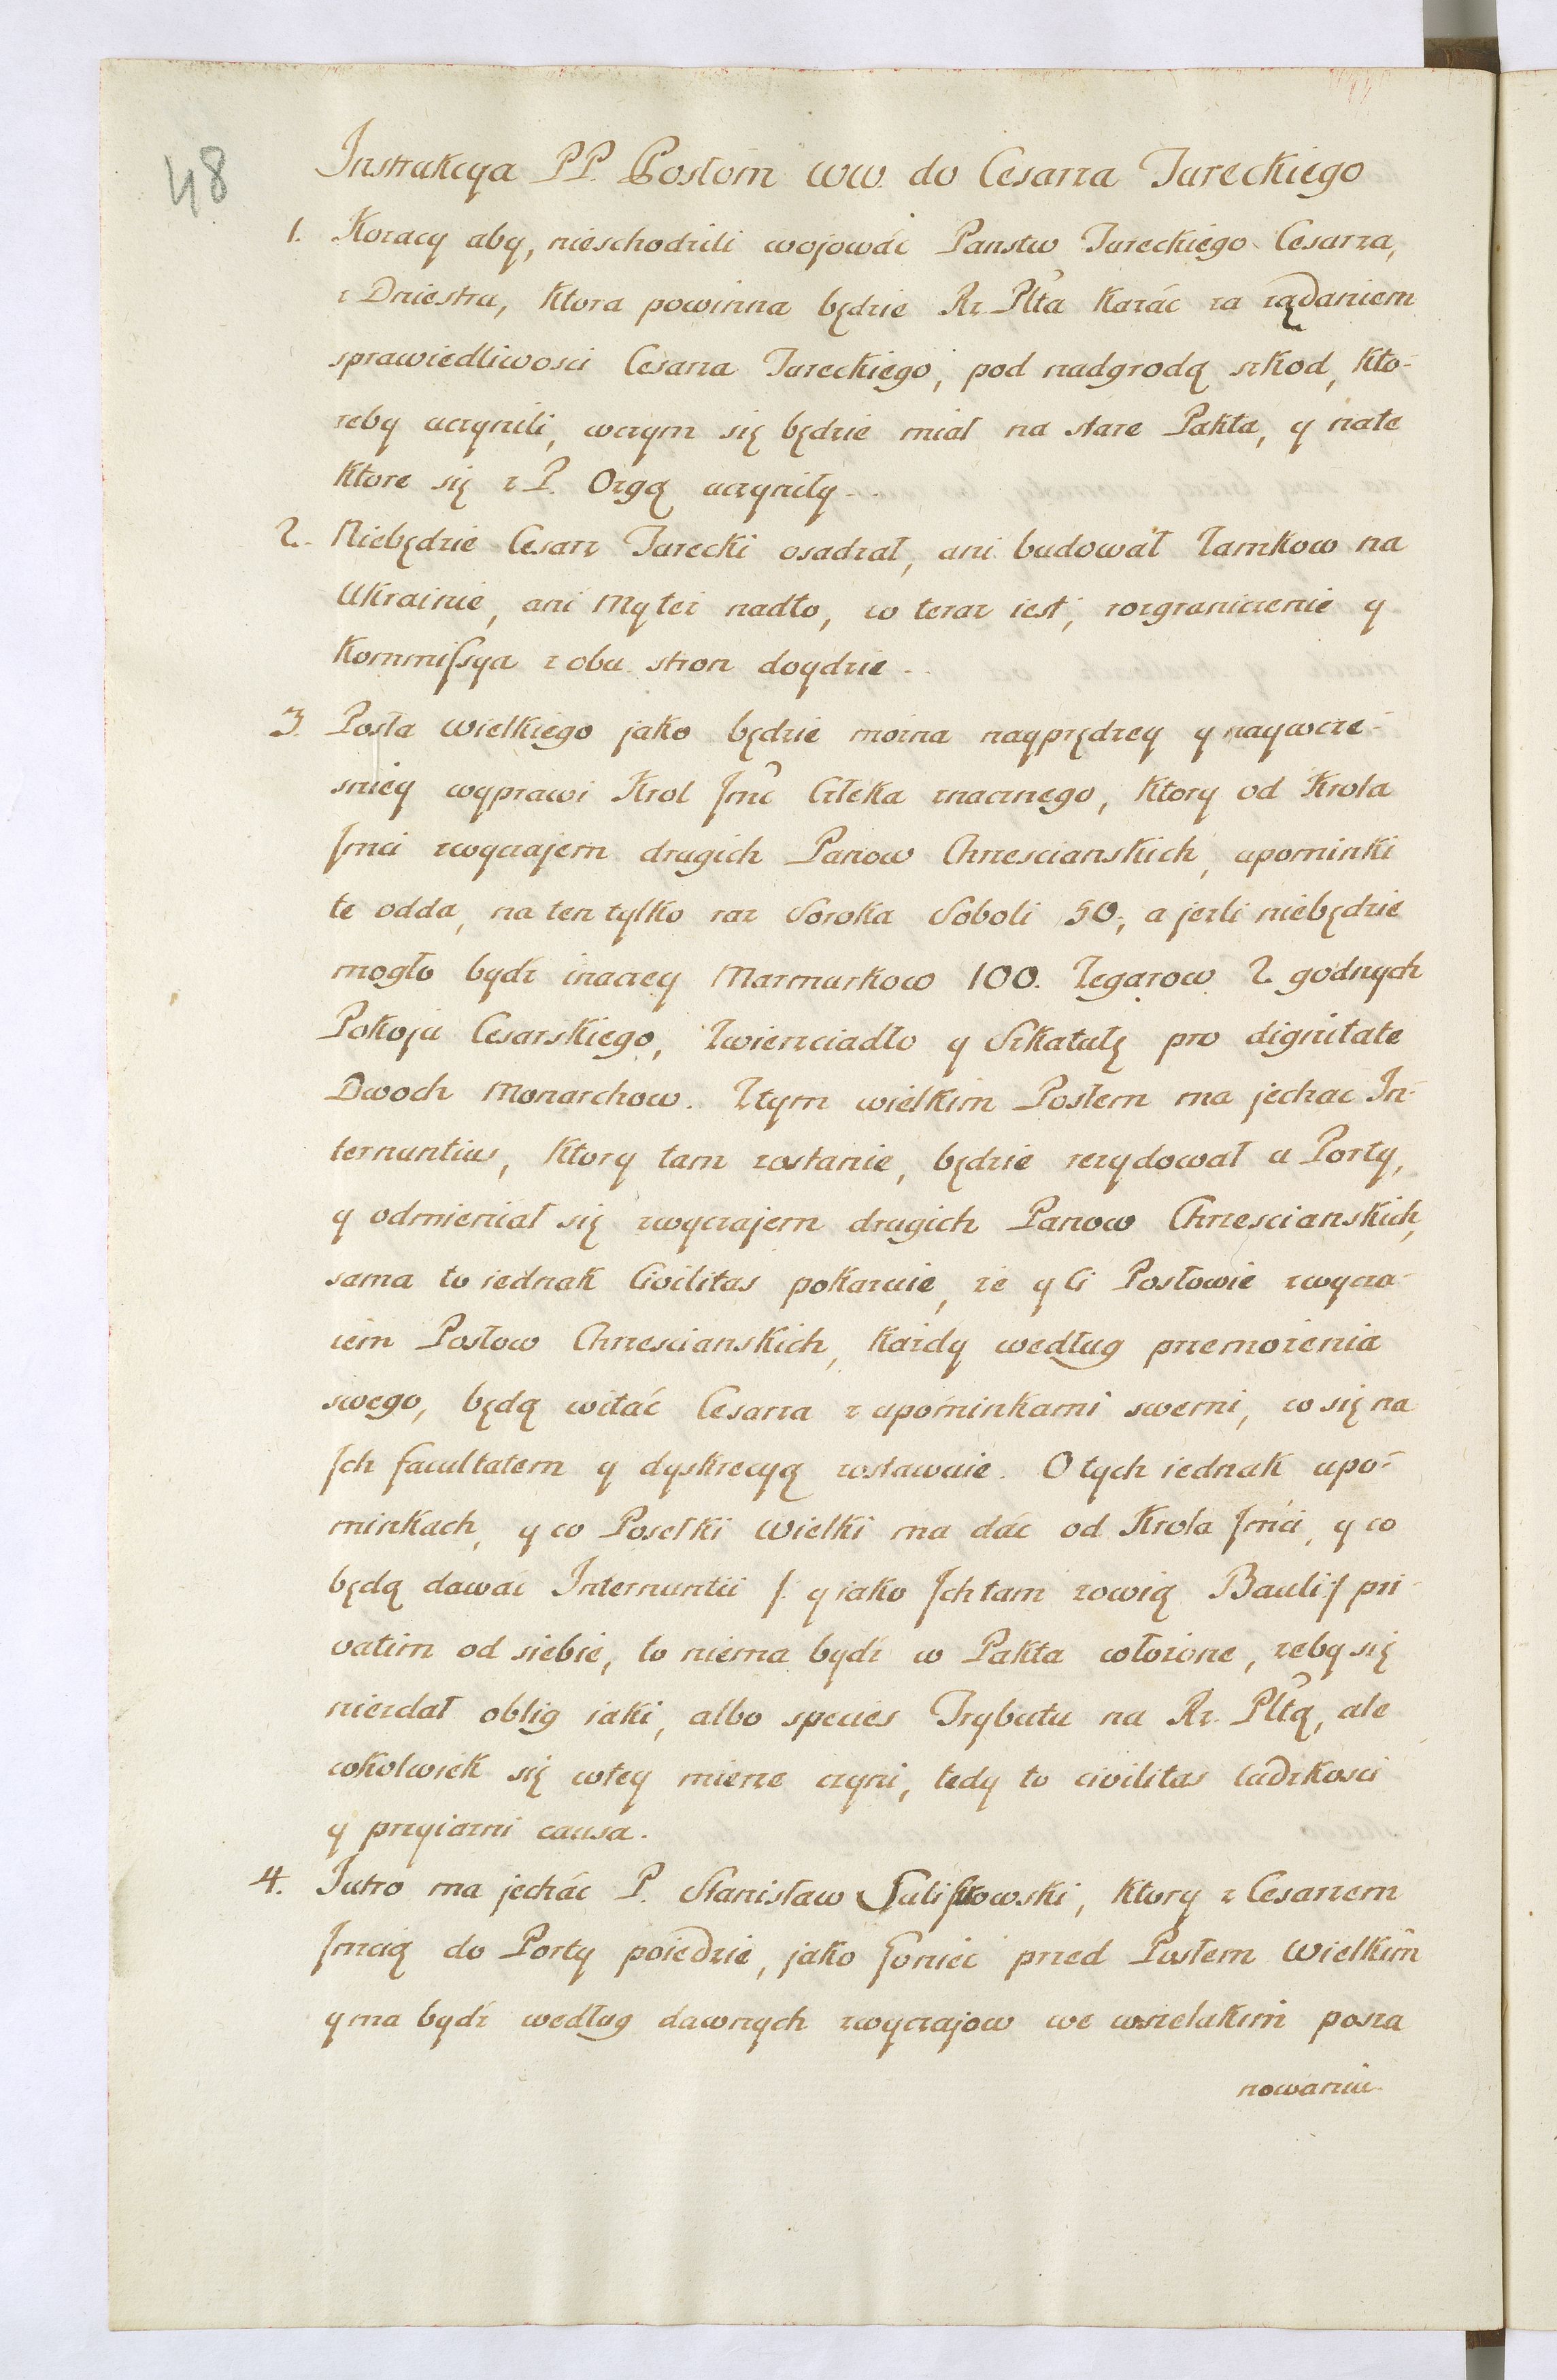 48
Instrukcya PP. Posłom WW. do Cesarza Tureckiego
1. Kozacy aby, nieschodzili wojowác Panstw Tureckiego Cesarza,
z Dniestru, ktora powinna będzie Rz. Plta karác za rządaniem
sprawiedliwosci Cesarza Tureckiego, pod nadgrodą szkod, kto-
reby uczynili, wczym się będzie miał na stare Pakta, y nate
ktore się z P. Orgą uczyniły..
2. Niebędzie Cesarz Turecki osadzał, ani budował Zamkow na
Ukrainie, ani My też nadto, co teraz iest, rozgraniczenie y
Kommissya z obu stron doydzie..
3. Posła wielkiego jako będzie można nayprędzey y naywcze-
sniey wyprawi Krol Jmć Człeka znacznego, ktory od Krola
Jmci zwyczajem drugich Panow Chrzescianskich, upominki
te odda, na ten tylko raz Soroka Soboli 50, a jezli niebędzie
mogło bydź inaczey Marmurkow 100. Zegarow 2. godnych
Pokoju Cesarskiego, Zwierzciadło y Szkatułę pro dignitate
Dwoch Monarchow. Ztym wielkim Posłem ma jechac In-
ternuntius, ktory tam zostanie, będzie rezydował u Porty,
y odmieniał się zwyczajem drugich Panow Chrzescianskich,
sama to iednak Civilitas pokazuie, że y Ci Posłowie zwycza-
iem Posłow Chrzescianskich, każdy według przemożenia
swego, będą witác Cesarza z upominkami swemi, co się na
Ich facultatem y dyskrecyą zostawuie. O tych iednak upo-
minkach, y co Posełki Wielki ma dác od Krola Jmći, y co
będą dawać Internuntii /: y iako Ich tam zowią Bauli :/ pri-
vatim od siebie, to niema bydź w Pakta włożone, żeby się
niezdał oblig iaki, albo species Trybutu na Rz. Pltą, ale
cokolwiek się wtey mierze czyni, tedy to civilitas ludzkosci
y przyiazni causa.
4. Jutro ma jechác P. Stanisław Sulistrowski, ktory z Cesarzem
Jmcią do Porty poiedzie, jako Goniec przed Posłem Wielkim
y ma bydź według dawnych zwyczajow we wszelakim posza
nowaniu.